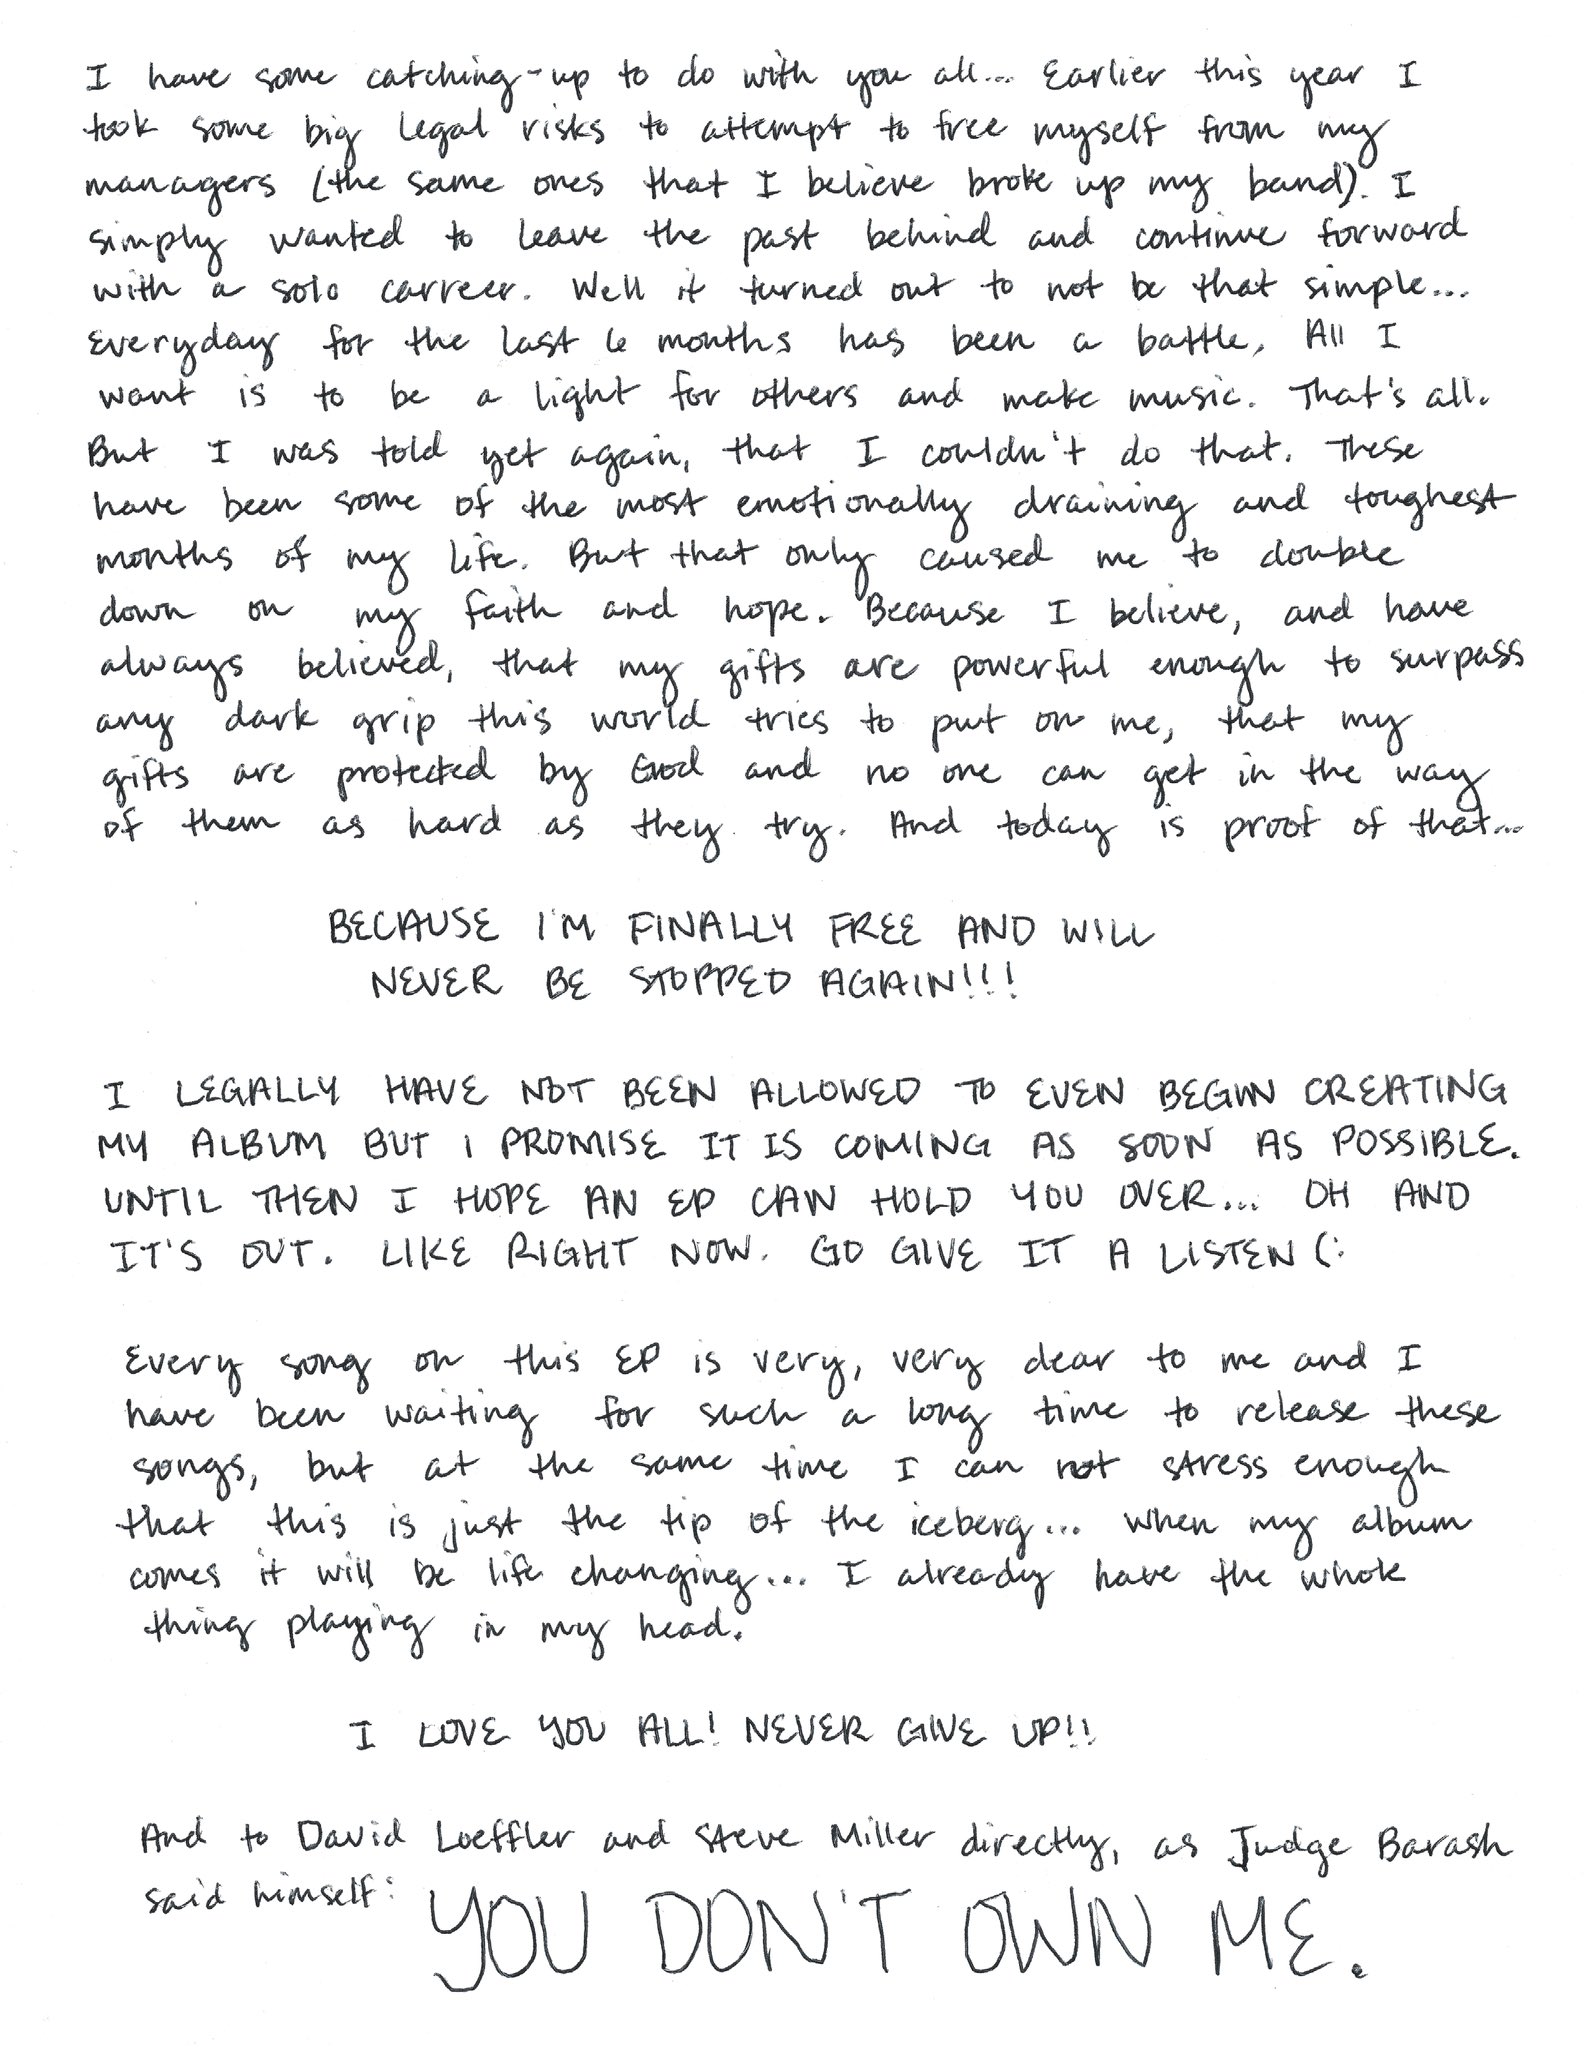 I have some catching-up to do with you all... Earlier this year I
took some big legal risks to attempt to free myself from my
managers (the same ones that I believe broke up my band). I
simply wanted to leave the past behind and continue forward
with a solo carreer. Well it turned out to not be that simple...
Everyday for the last 6 months has been a battle. All I
want is to be a light for others and make music. That's all.
But I was told yet again, that I couldn't do that. These
have been some of the most emotionally draining and toughest
months of my life. But that only caused me to double
down on my faith and hope. Because I believe, and have
always believed, that my gifts are powerful enough to surpass
any dark grip this world tries to put on me, that my
gifts are protected by God and no one can get in the way
of them as hard as they try. And today is proof of that...
BECAUSE I'M FINALLY FREE AND WILL
NEVER BE STOPPED AGAIN!!!
I LEGALLY HAVE NOT BEEN ALLOWED TO EVEN BEGIN CREATING
MY ALBUM BUT I PROMISE IT IS COMING AS SOON AS POSSIBLE.
UNTIL THEN I HOPE AN EP CAN HOLD YOU OVER... OH AND
IT'S OUT. LIKE RIGHT NOW. GO GIVE IT A LISTEN (:
Every song on this EP is very, very dear to me and I
have been waiting for such a long time to release these
songs, but at the same time I can not stress enough
that this is just the tip of the iceberg... when my album
comes it will be life changing... I already have the whole
thing playing in my head.
I LOVE YOU ALL! NEVER GIVE UP!!
And to David Loeffler and Steve Miller directly, as Judge Barash
said himself: YOU DON'T OWN ME.